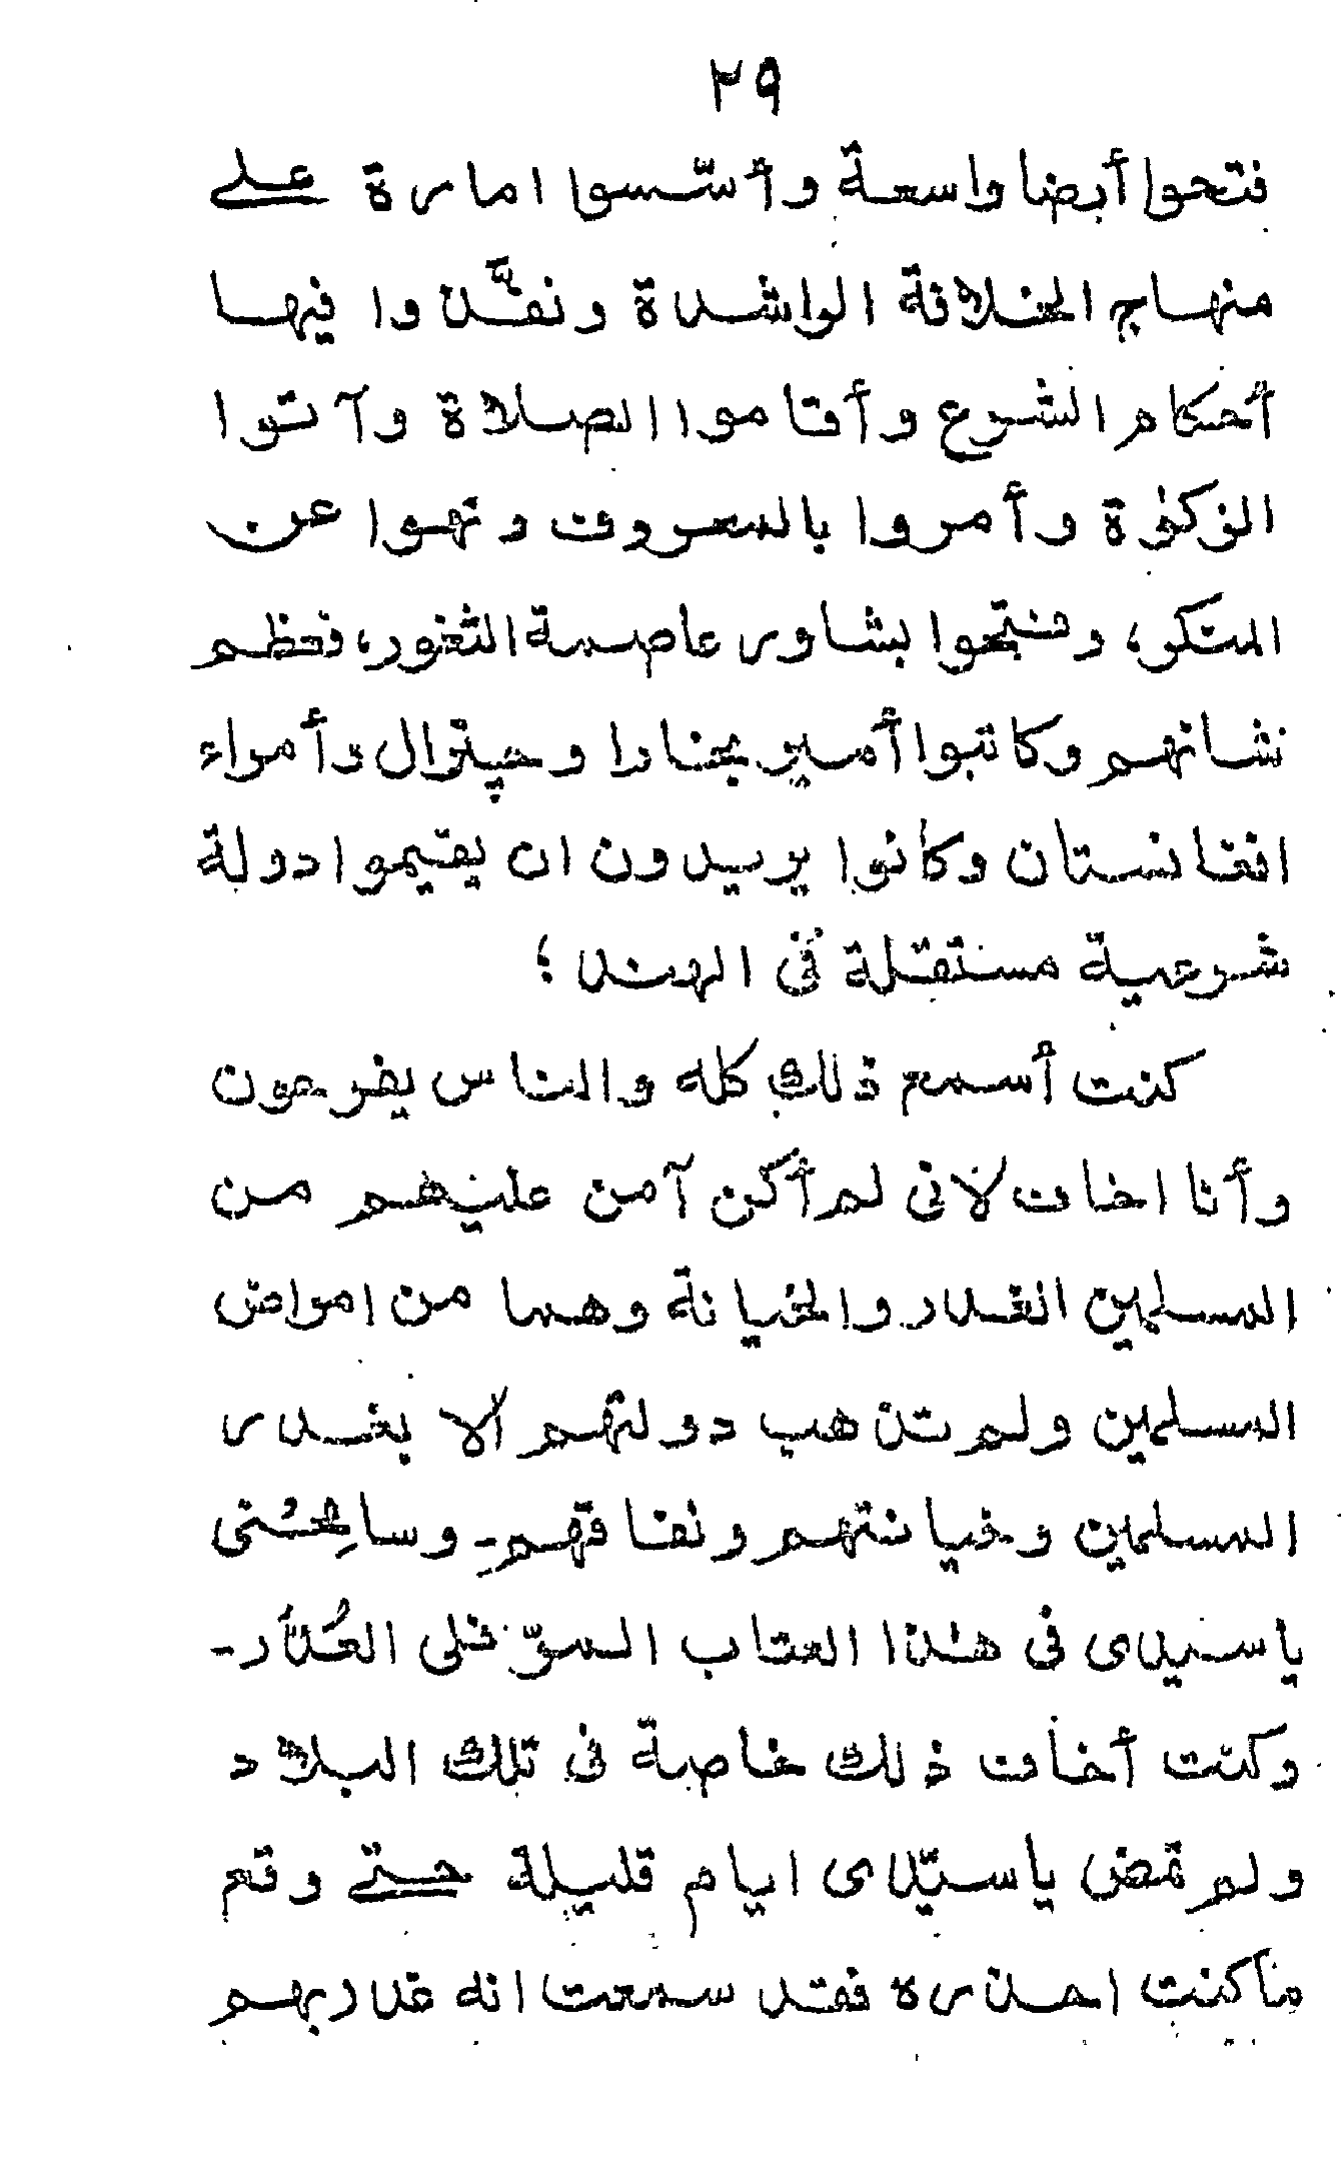 ٢٩
فتحوا أرضا واسعة وأسّسوا امارة على
منهاج الخلافة الراشدة ونفّذوا فيها
أحكام الشرع وأقاموا الصلاة وآتوا
الزكوٰة وأمروا بالمعروف ونهوا عن
المنكر، وفتحوا بشاور عاصمة الثغور، فعظم
شانهم وكاتبوا أمير بخارا وچترال وأمراء
افغانستان وكانوا يريدون ان يقيموا دولة
شرعية مستقلة فى الهند؛
كنت أسمع ذلك كله والناس يفرحون
وأنا اخاف لانى لم أكن آمن عليهم من
المسلمين الغدر والخيانة وهما من امراض
المسلمين ولم تذهب دولتهم الا بغدر
المسلمين وخيانتهم ونفاقهم- وسامِحْنى
ياسيدى فى هٰذا العتاب المرّ فلى العُذر-
وكنت أخاف ذلك خاصة فى تلك البلاد
ولم تمض ياسيّدى ايام قليلة حتى وقع
ما كنت احذره فقد سمعت انه غدر بهم